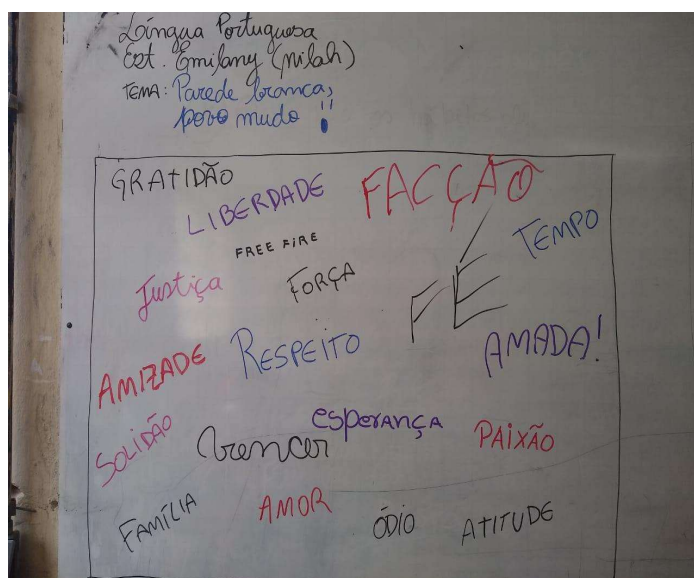 Língua Portuguesa
Est. Emilany (milah)
TEMA: Parede branca,
povo mudo !!
GRATIDÃO
LIBERDADE
FACÇÃO
FREE FIRE
TEMPO
Justiça
FORÇA
FÉ
AMIZADE
RESPEITO
AMADA!
SOLIDÃO
vencer
esperança
PAIXÃO
FAMÍLIA
AMOR
ÓDIO
ATITUDE